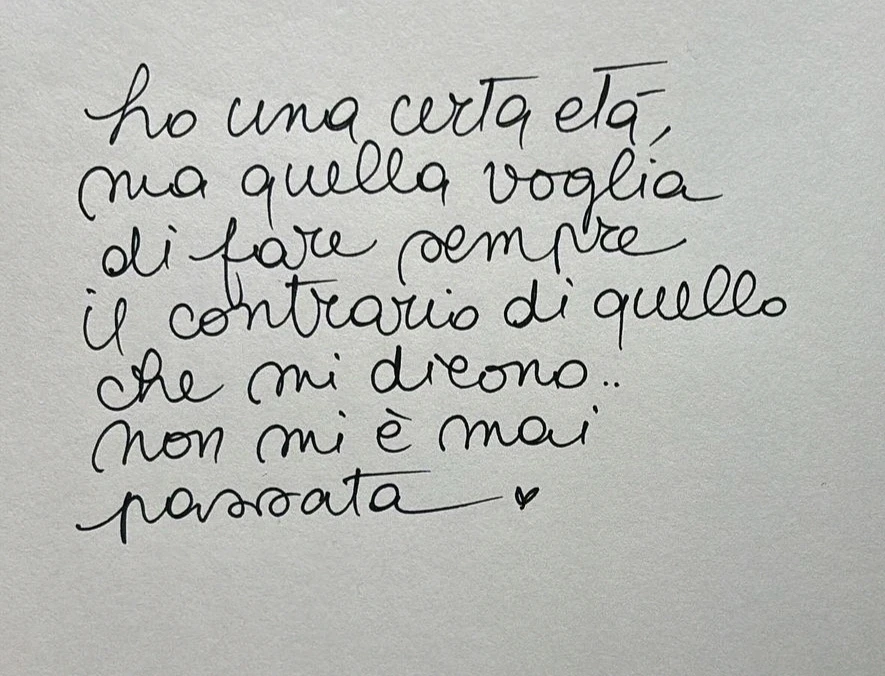 ho una certa età,
ma quella voglia
di fare sempre
il contrario di quello
che mi dicono..
non mi è mai
passata